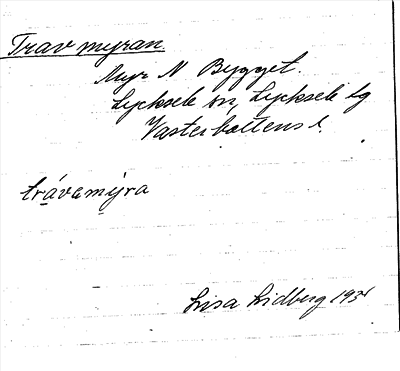 Trav myran.
Myr N Bygget.
Lycksele sn, Lycksele lg
Västerbottens l.
trávamýra
Lisa Lidberg 193